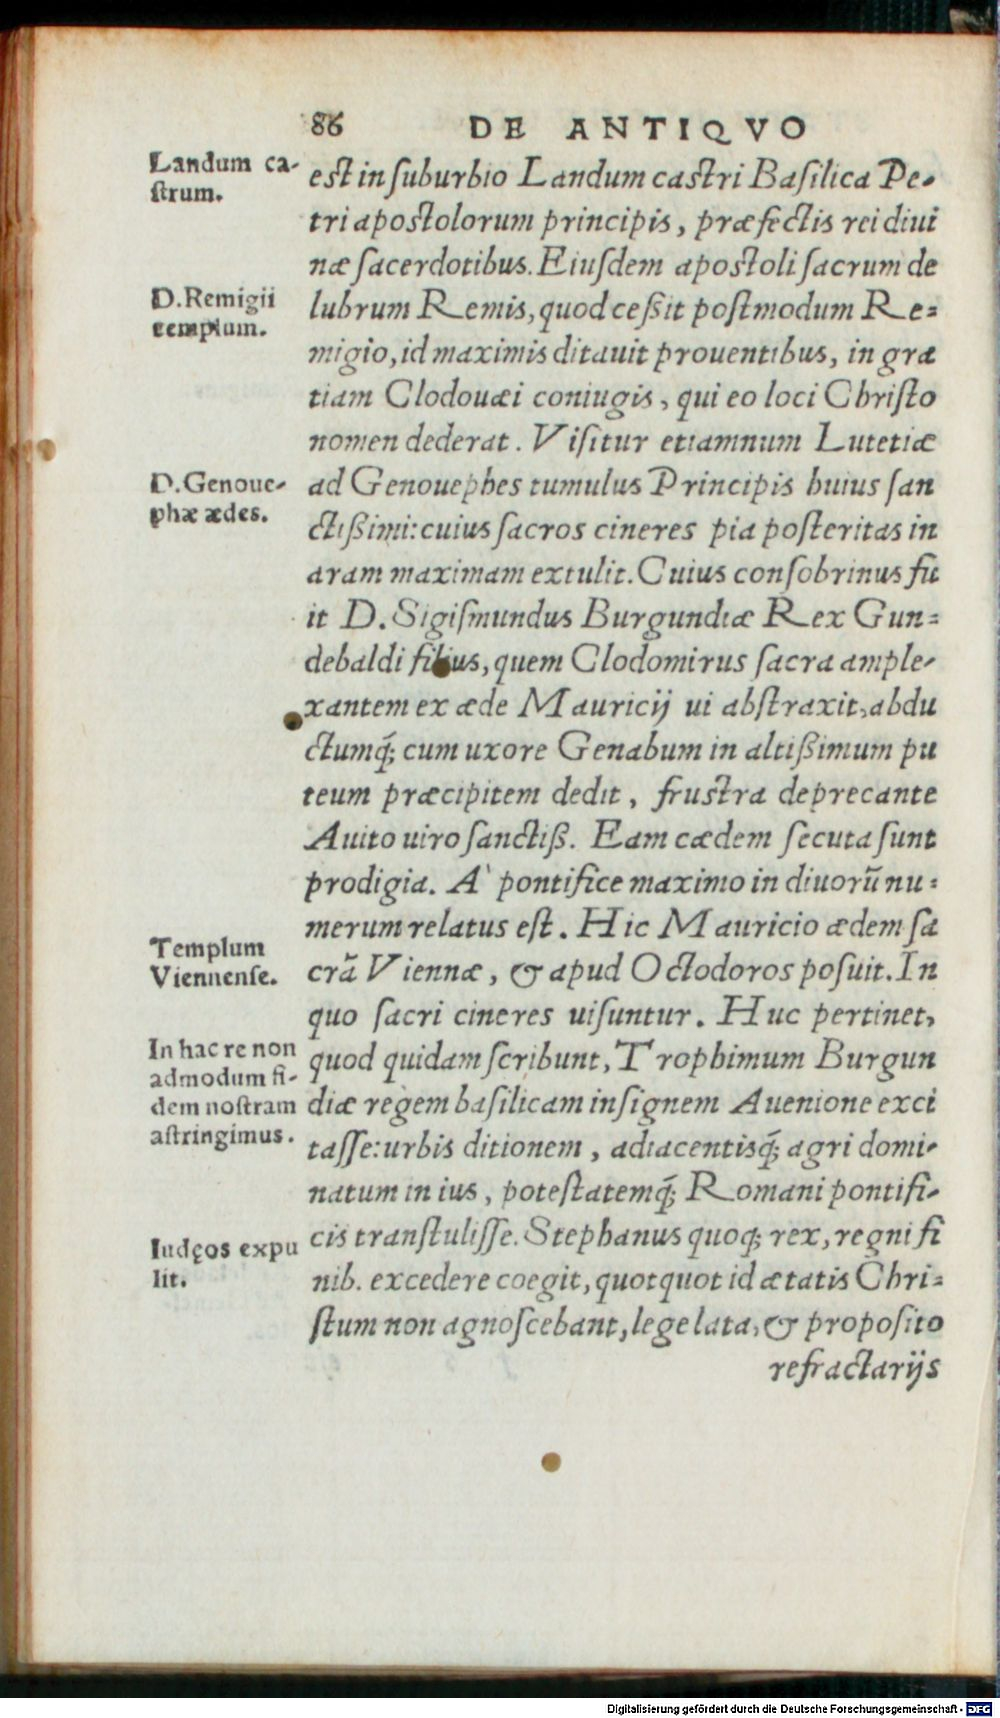 86 DE ANTIQVO
Landum ca-
ſtrum.
est in ſuburbio Landum castri Baſilica Pe-
tri apostolorum principis, præfectis rei diui
næ ſacerdotibus. Eiuſdem apostoli ſacrum de
D. Remigii
templum.
lubrum Remis, quod ceßit poſtmodum Re=
migio, id maximis ditauit prouentibus, in gra
tiam Clodouæi coniugis, qui eo loci Chriſto
nomen dederat. Viſitur etiamnum Lutetiæ
D. Genoue-
phæ ædes.
ad Genouephes tumulus Principis huius ſan
ctißimi: cuius ſacros cineres pia poſteritas in
aram maximam extulit. Cuius conſobrinus fu
it D. Sigiſmundus Burgundiæ Rex Gun=
debaldi filius, quem Clodomirus ſacra ample-
xantem ex æde Mauricij ui abſtraxit, abdu
ctumq́; cum uxore Genabum in altißimum pu
teum præcipitem dedit, frustra deprecante
Auito uiro ſanctiß. Eam cædem ſecuta ſunt
prodigia. A` pontifice maximo in diuorũ nu=
merum relatus eſt. Hic Mauricio ædem ſa
Templum
Viennenſe.
crã Viennæ, & apud Octodoros poſuit. In
quo ſacri cineres uiſuntur. Huc pertinet,
In hac re non
admodum fi-
dem noſtram
aſtringimus.
quod quidam ſcribunt, Trophimum Burgun
diæ regem baſilicam inſignem Auenione exci
taſſe: urbis ditionem, adiacentisq́; agri domi-
natum in ius, poteſtatemq́; Romani pontifi-
Iudęos expu
lit.
cis tranſtuliſſe. Stephanus quoq; rex, regni fi
nib. excedere coegit, quotquot id ætatis Chri=
ſtum non agnoſcebant, lege lata, & propoſito
refractarijs
Digitalisierung gefördert durch die Deutsche Forschungsgemeinschaft - DFG